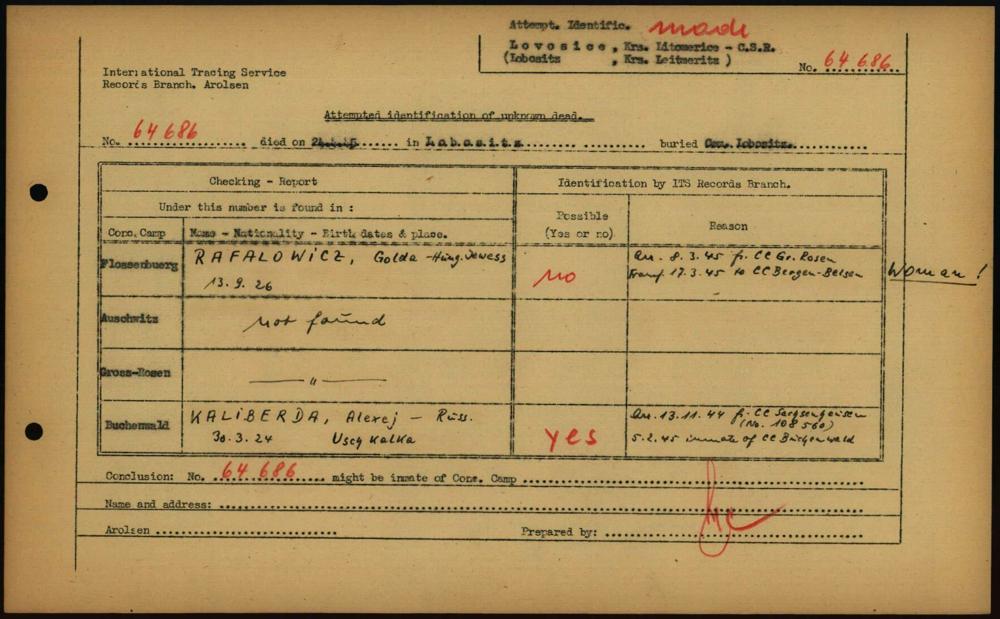 Attempt. Identific. made
Lovosice, Krs. Litomerice - C.S.R.
(Lobositz , Krs. Leitmeritz )
No. 64 686
International Tracing Service
Records Branch. Arolsen
Attempted identification of unknown dead.
No. 64 686 died on in Lobositz buried Cem. Lobositz
Checking - Report
Identification by ITS Records Branch.
Under this number is found in :
Possible
(Yes or no)
Reason
Conc. Camp
Name - Nationality - Birth dates & place.
Flossenbuerg
RAFALOWICZ, Golda - Hung. Jewess
13.9.26
no
Arr. 8.3.45 fr. CC Gr. Rosen
transf. 17.3.45 to CC Bergen-Belsen
Woman!
Auschwitz
not found
Gross-Rosen
— " —
Buchenwald
KALIBERDA, Alexej - Russ.
30.3.24 Uscy Kalka
yes
Arr. 13.11.44 fr. CC Sachsenhausen
(No. 108560)
5.2.45 inmate of CC Buchenwald
Conclusion: No. 64 686 might be inmate of Conc. Camp
Name and address:
Arolsen
Prepared by: